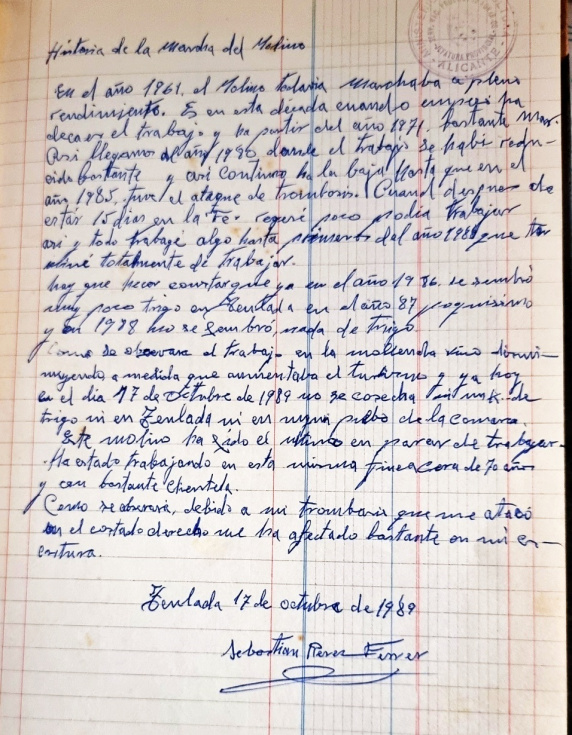 Historia de la Marcha del Molino
ALICANTE
En el año 1961, el Molino todavia Marchaba a pleno
rendimiento. Es en esta década cuando empezó ha
decaer el trabajo y ha partir del año 1971, bastante mas.
Asi llegamos al año 1980, donde el trabajo se habí redu-
cido bastante y asi continuo ha la baja hasta que en el
año 1985, tuve el ataque de trombosis. Cuand despues de
estar 15 dias en la Fe. regresé poco podia trabajar
asi y todo trabagé algo hasta primeros del año 1988 que ter
miné totalmente de trabajar.
hay que hacer constar que ya en el año 1986. se sembró
muy poco trigo en Teulada en el año 87 poquisimo
y en 1988 no se sembró, nada de trigo.
Como se observara el trabajo en la molienda vino dismi-
nuyendo a medida que aumentaba el turismo y ya hoy
en el dia 17 de octubre de 1989 no se cosecha ni un K. de
trigo ni en Teulada ni en ningun pueblo de la comarca.
Este molino ha sido el ultimo en parar de trabajar.
Ha estado trabajando en esta misma finca cerca de 70 años
y con bastante clientela.
Como se observará, debido a mi trombosis que me atacó
en el costado derecho me ha afectado bastante en mi es-
critura.
Teulada 17 de octubre de 1989
Sebastian Perez Ferrer